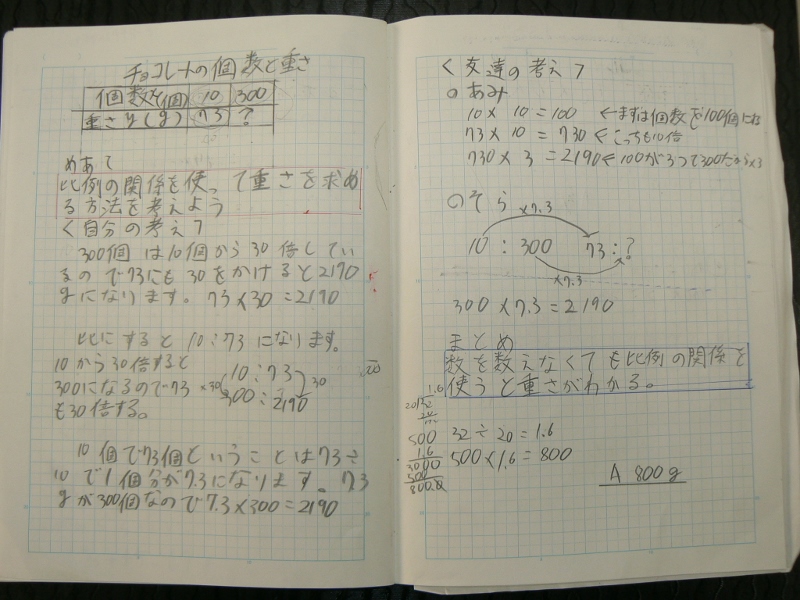 チョコレートの個数と重さ
個数x(個) 10 300
重さy(g) 73 ?
めあて
比例の関係を使って重さを求め
る方法を考えよう
<自分の考え>
300個は10個から30倍してい
るので73にも30をかけると2190
gになります。73×30=2190
比にすると10:73になります。
10から30倍すると
300になるので73
も30倍する。
×30 10:73 30
300:2190
10個で73個ということは73÷
10で1個分が7.3になります。7.3
gが300個なので7.3×300=2190
<友達の考え>
○あみ
10×10=100 ←まずは個数を100個にする
73×10=730 ←こっちも10倍
730×3=2190 ←100が3つで300だから×3
○そら
×7.3
10:300 73:?
×7.3
300×7.3=2190
まとめ
数を数えなくても比例の関係を
使うと重さがわかる。
1.6
20)32
500
1.6
3000
500
800.0
32÷20=1.6
500×1.6=800
A 800g